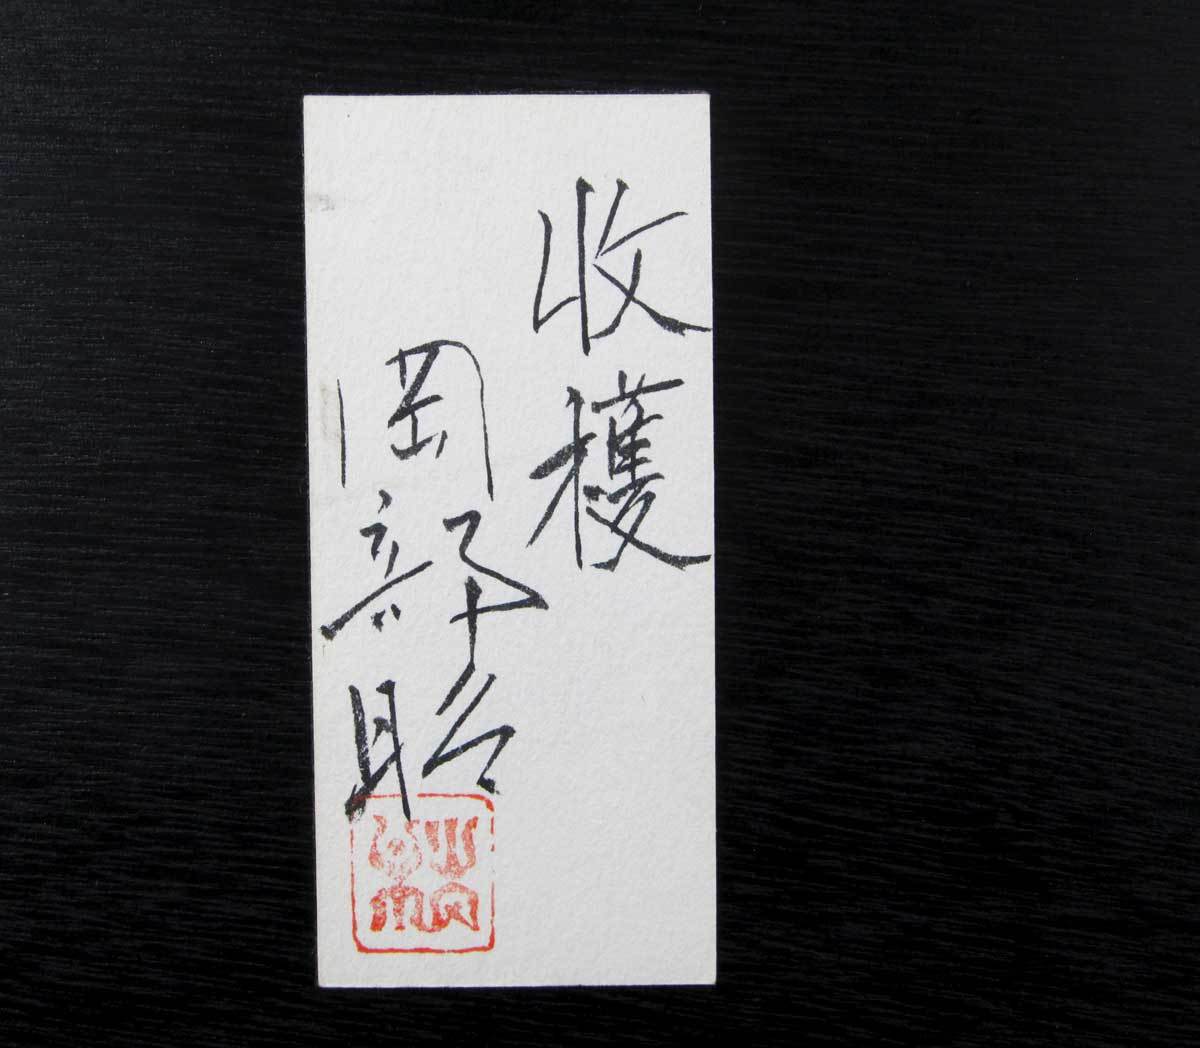 收穫
岡部昭